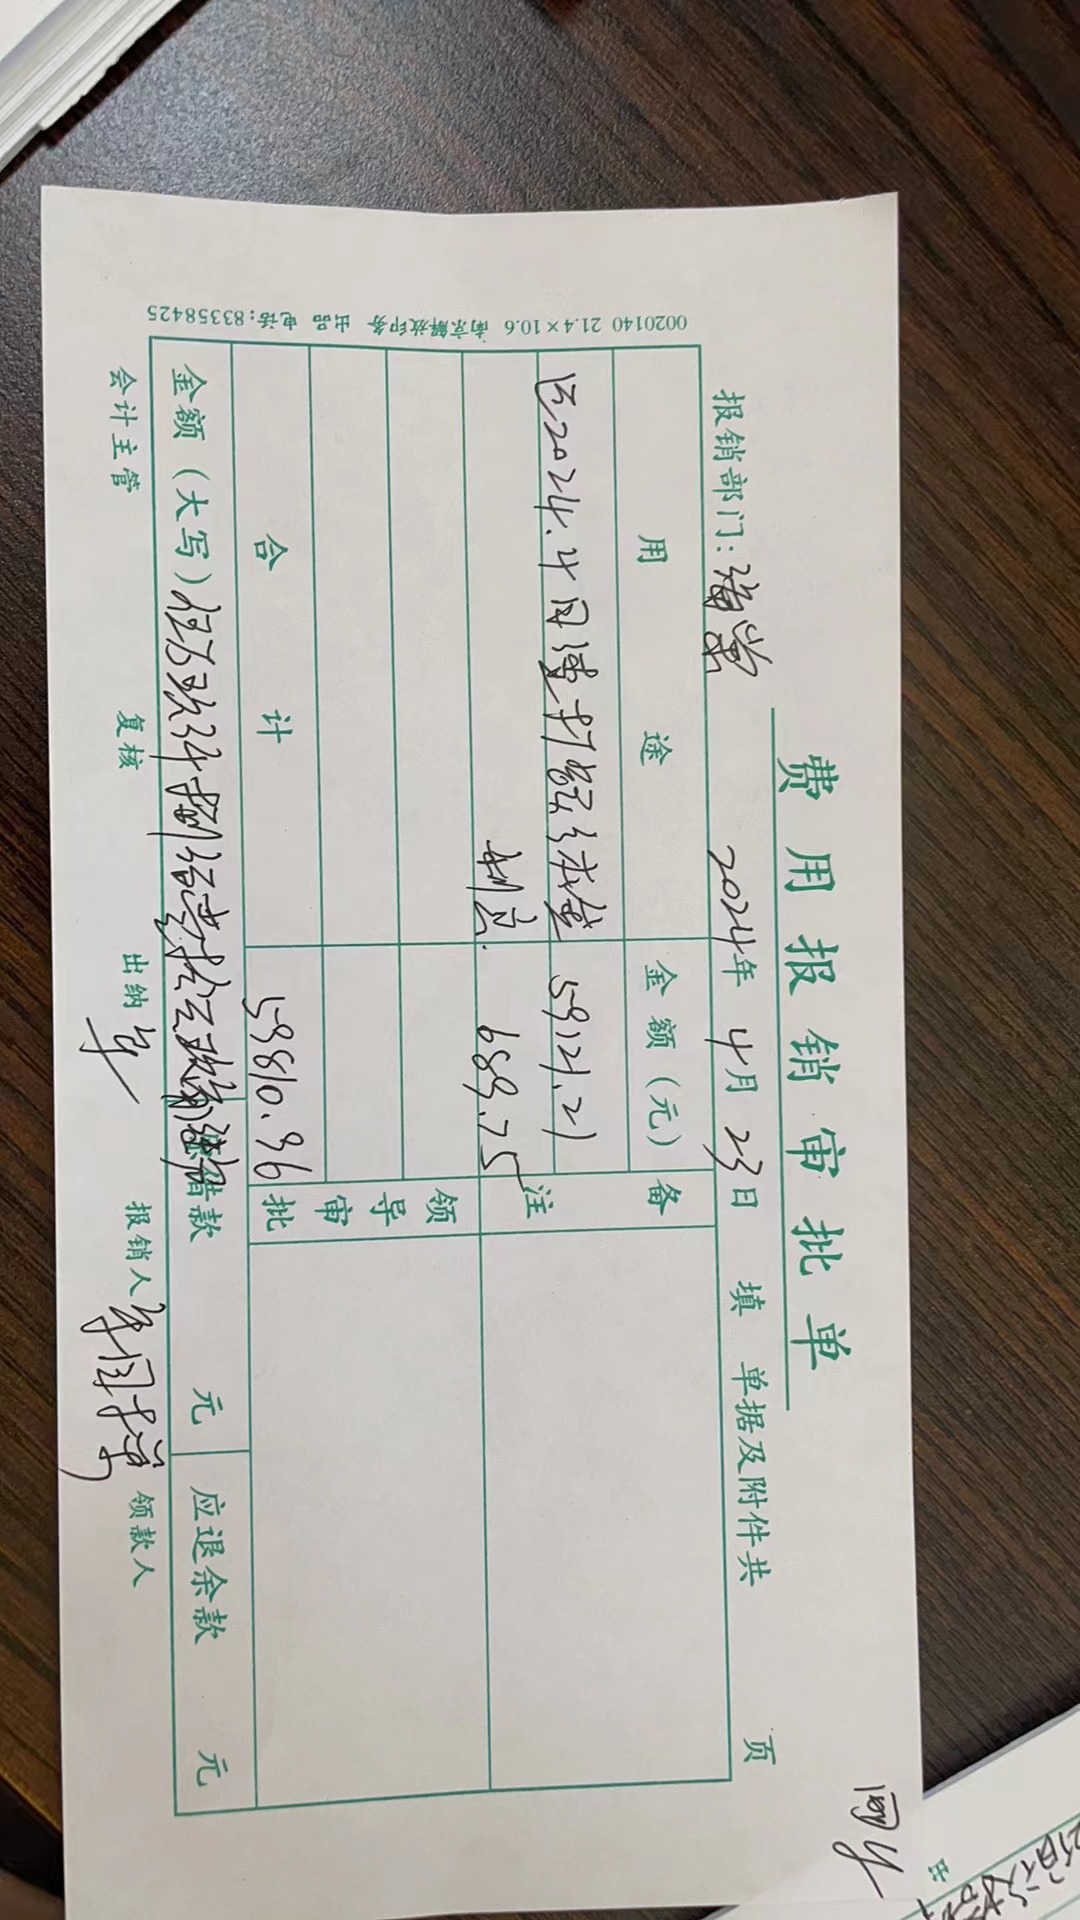 费用报销审批单
报销部门: 2024年 4月 23日 填 单据及附件共 页
用 途 金额(元) 备注
2024.4月 59121.21
689.75
领导审批
合 计 59810.96
金额(大写)伍万玖仟捌佰壹拾元玖角陆分 原借款 元 应退余款 元
会计主管 复核 出纳 报销人 领款人
0020140 21.4×10.6 南京解放印务 出品 电话:83358425